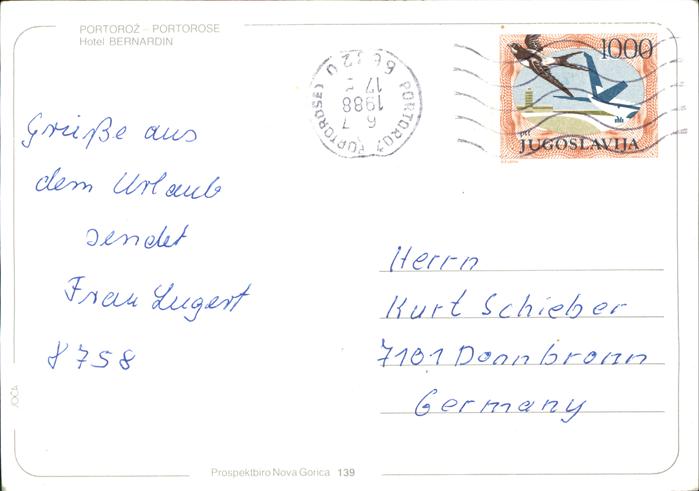 PORTOROŽ – PORTOROSE
Hotel BERNARDIN
1000
JUGOSLAVIJA
66320 PORTOROŽ (PORTOROSE)
17
1988
6 7
Grüße aus
dem Urlaub
sendet
Frau Lugert
8758
Herrn
Kurt Schieber
7101 Donnbronn
Germany
JOČA
Prospektbiro Nova Gorica 139